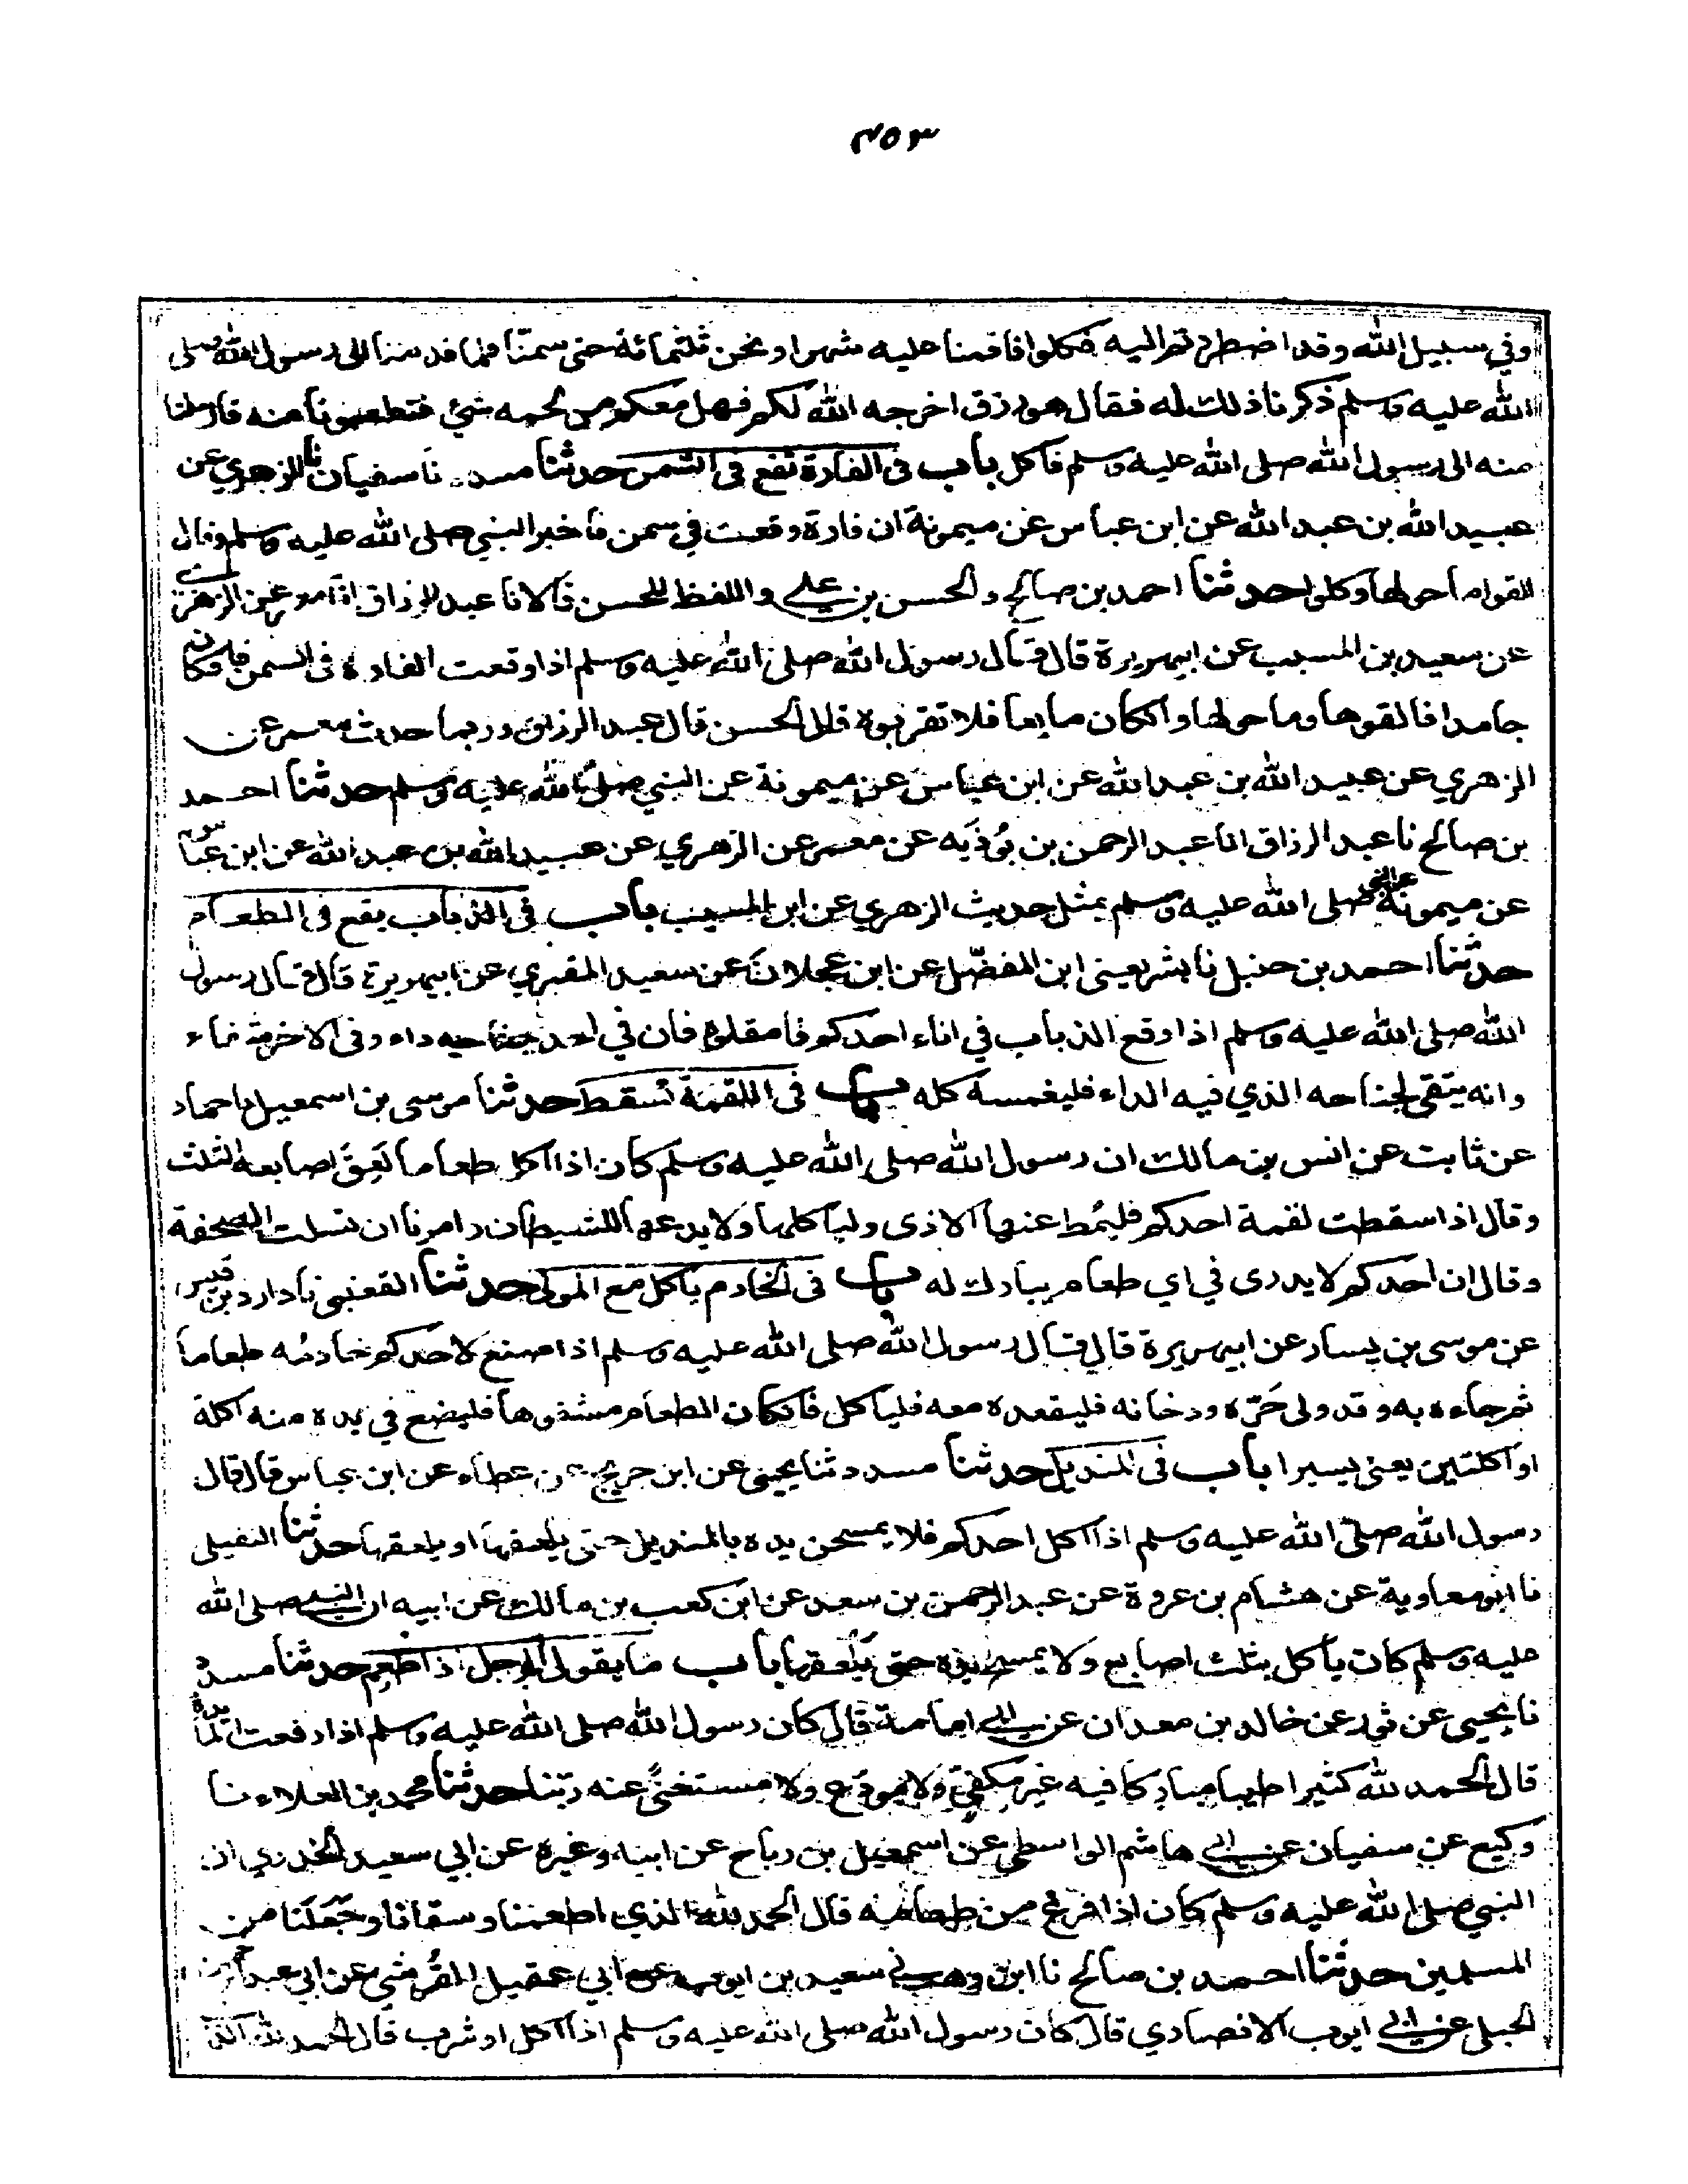 ٣٥٣
وفي سبيل الله وقد اضطررتم اليه فكلوا فاقمنا عليه شهرا ونحن ثلثمائة حتى سمنّا فلما قدمنا الى رسول الله صلى
الله عليه وسلم ذكرنا ذلك له فقال هو رزق اخرجه الله لكم فهل معكم من لحمه شئ فتطعمونا منه فارسلنا
منه الى رسول الله صلى الله عليه وسلم فاكل باب فى الفارة تقع فى السمن حدثنا مسدد نا سفيان نا الزهري عن
عبيد الله بن عبد الله عن ابن عباس عن ميمونة ان فارة وقعت في سمن فاخبر النبي صلى الله عليه وسلم فقال
القوا ما حولها وكلوا حدثنا احمد بن صالح والحسن بن علي واللفظ للحسن قالا نا عبد الرزاق انا معمر عن الزهري
عن سعيد بن المسيب عن ابيهريرة قال قال رسول الله صلى الله عليه وسلم اذا وقعت الفارة فى السمن فان كان
جامدا فالقوها وما حولها وان كان مايعا فلا تقربوه قال الحسن قال عبد الرزاق وربما حدث به معمر عن
الزهري عن عبيد الله بن عبد الله عن ابن عباس عن ميمونة عن النبي صلى الله عليه وسلم حدثنا احمد
بن صالح نا عبد الرزاق انا عبد الرحمن بن بُوذَيه عن معمر عن الزهري عن عبيد الله بن عبد الله عن ابن عباس
عن ميمونة عن النبي صلى الله عليه وسلم بمثل حديث الزهري عن ابن المسيب باب فى الذباب يقع فى الطعام
حدثنا احمد بن حنبل نا بشر يعنى ابن المفضّل عن ابن عجلان عن سعيد المقبري عن ابيهريرة قال قال رسول
الله صلى الله عليه وسلم اذا وقع الذباب في اناء احدكم فامقلوه فان في احد جناحيه داء وفى الاخر شفاء
وانه يتقى بجناحه الذي فيه الداء فليغمسه كله باب فى اللقمة تسقط حدثنا موسى بن اسمعيل نا حماد
عن ثابت عن انس بن مالك ان رسول الله صلى الله عليه وسلم كان اذا اكل طعاما لَعِقَ اصابعه الثلث
وقال اذا سقطت لقمة احدكم فليُمط عنها الاذى ولياكلها ولا يدعها للشيطان وامرنا ان نسلت الصحفة
وقال ان احدكم لا يدرى في اي طعامه يبارك له باب فى الخادم ياكل مع المولى حدثنا القعنبى نا داود بن قيس
عن موسى بن يسار عن ابيهريرة قال قال رسول الله صلى الله عليه وسلم اذا صنع لاحدكم خادمُه طعاما
ثم جاءه به وقد ولى حَرّه ودخانه فليقعده معه فلياكل فان كان الطعام مشفوها فليضع في يده منه اكلة
او اكلتين يعنى يسيرا باب فى المنديل حدثنا مسدد ثنا يحيى عن ابن جريج عن عطاء عن ابن عباس قال قال
رسول الله صلى الله عليه وسلم اذا اكل احدكم فلا يمسحن يده بالمنديل حتى يلعقها او يلعقها حدثنا النفيلى
نا ابو معاوية عن هشام بن عروة عن عبد الرحمن بن سعد عن ابن كعب بن مالك عن ابيه ان النبي صلى الله
عليه وسلم كان ياكل بثلث اصابع ولا يمسح يده حتى يَلْعقها باب ما يقول الرجل اذا طعم حدثنا مسدد
نا يحيى عن ثور عن خالد بن معدان عن ابي امامة قال كان رسول الله صلى الله عليه وسلم اذا رفعت المائدة
قال الحمد لله كثيرا طيبا مباركا فيه غير مكفيّ ولا مودّع ولا مستغنىً عنه ربّنا حدثنا محمد بن العلاء نا
وكيع عن سفيان عن ابي هاشم الواسطي عن اسمعيل بن رباح عن ابيه وغيره عن ابي سعيد الخدري ان
النبي صلى الله عليه وسلم كان اذا فرغ من طعامه قال الحمد لله الذي اطعمنا وسقانا وجَعَلَنا من
المسلمين حدثنا احمد بن صالح نا ابن وهب سعيد بن ايوب عن ابي عقيل القُرشي عن ابي عبد الرحمن
الحبلى عن ابي ايوب الانصاري قال كان رسول الله صلى الله عليه وسلم اذا اكل او شرب قال الحمد لله الذي